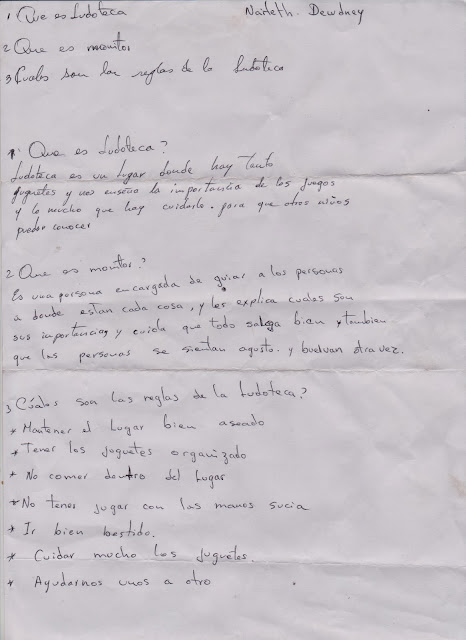 1 Que es Ludoteca Naileth. Dewdney
2 Que es monitor
3 Cuales son las reglas de la Ludoteca
1. Que es Ludoteca?
Ludoteca es un lugar donde hay tanto
juguetes y nos enseña la importancia de los juegos
y lo mucho que hay cuidarlo. para que otros niños
puedar conocer
2 Que es monitor?
Es una persona encargada de guiar a las personas
a donde estan cada cosa, y les explica cuales son
sus importancias y cuida que todo salega bien y tambien
que las personas se sientan agusto. y buelvan otra vez.
3 Cúales son las reglas de la Ludoteca?
* Mantener el Lugar bien aseado
* Tener los juguetes organizado
* No comer dentro del Lugar
* No tener jugar con las manos sucia
* Ir bien bestido.
* Cuidar mucho los juguetes.
* Ayudarnos unos a otro